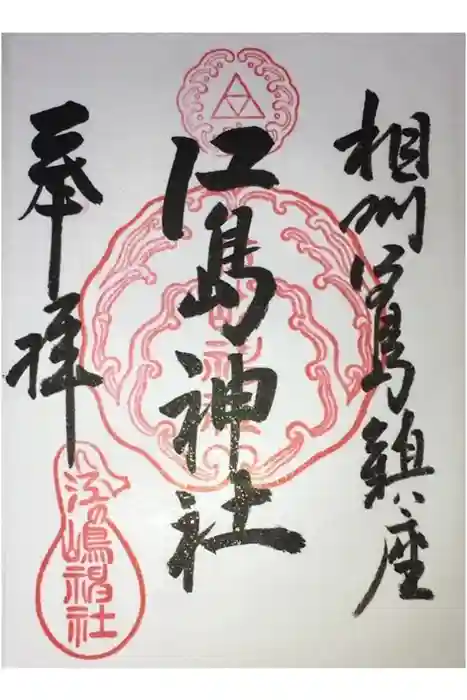 相州江島鎮座
江島神社
奉拝
江の嶋神社